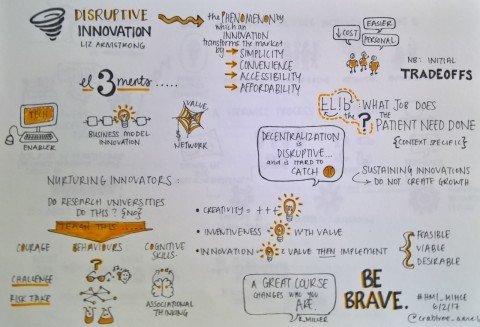 DISRUPTIVE
INNOVATION
LIZ ARMSTRONG
the PHENOMENON by
which an
INNOVATION
transforms the market
by → SIMPLICITY
→ CONVENIENCE
→ ACCESSIBILITY
→ AFFORDABILITY
EASIER
↓COST
PERSONAL
NB: INITIAL
TRADEOFFS
el3ments .....
TECH
ENABLER
BUSINESS MODEL
INNOVATION
VALUE
$
NETWORK
DECENTRALIZATION
IS DISRUPTIVE...
and is HARD TO
CATCH
the ?: WHAT JOB DOES
THE
PATIENT NEED DONE
{CONTEXT SPECIFIC}
SUSTAINING INNOVATIONS
DO NOT CREATE GROWTH
NURTURING INNOVATORS:
DO RESEARCH UNIVERSITIES
DO THIS? {NO}
TEACH THIS....
COURAGE
BEHAVIOURS
COGNITIVE
SKILLS
CHALLENGE
RISK TAKE
?
ASSOCIATIONAL
THINKING
• CREATIVITY = +++
• INVENTIVENESS = WITH VALUE
• INNOVATION = VALUE THEN IMPLEMENT
FEASIBLE
VIABLE
DESIRABLE
A GREAT COURSE
CHANGES WHO YOU
ARE.
R. MILLER
BE
BRAVE.
#HMI_MIHCE
6/2/17